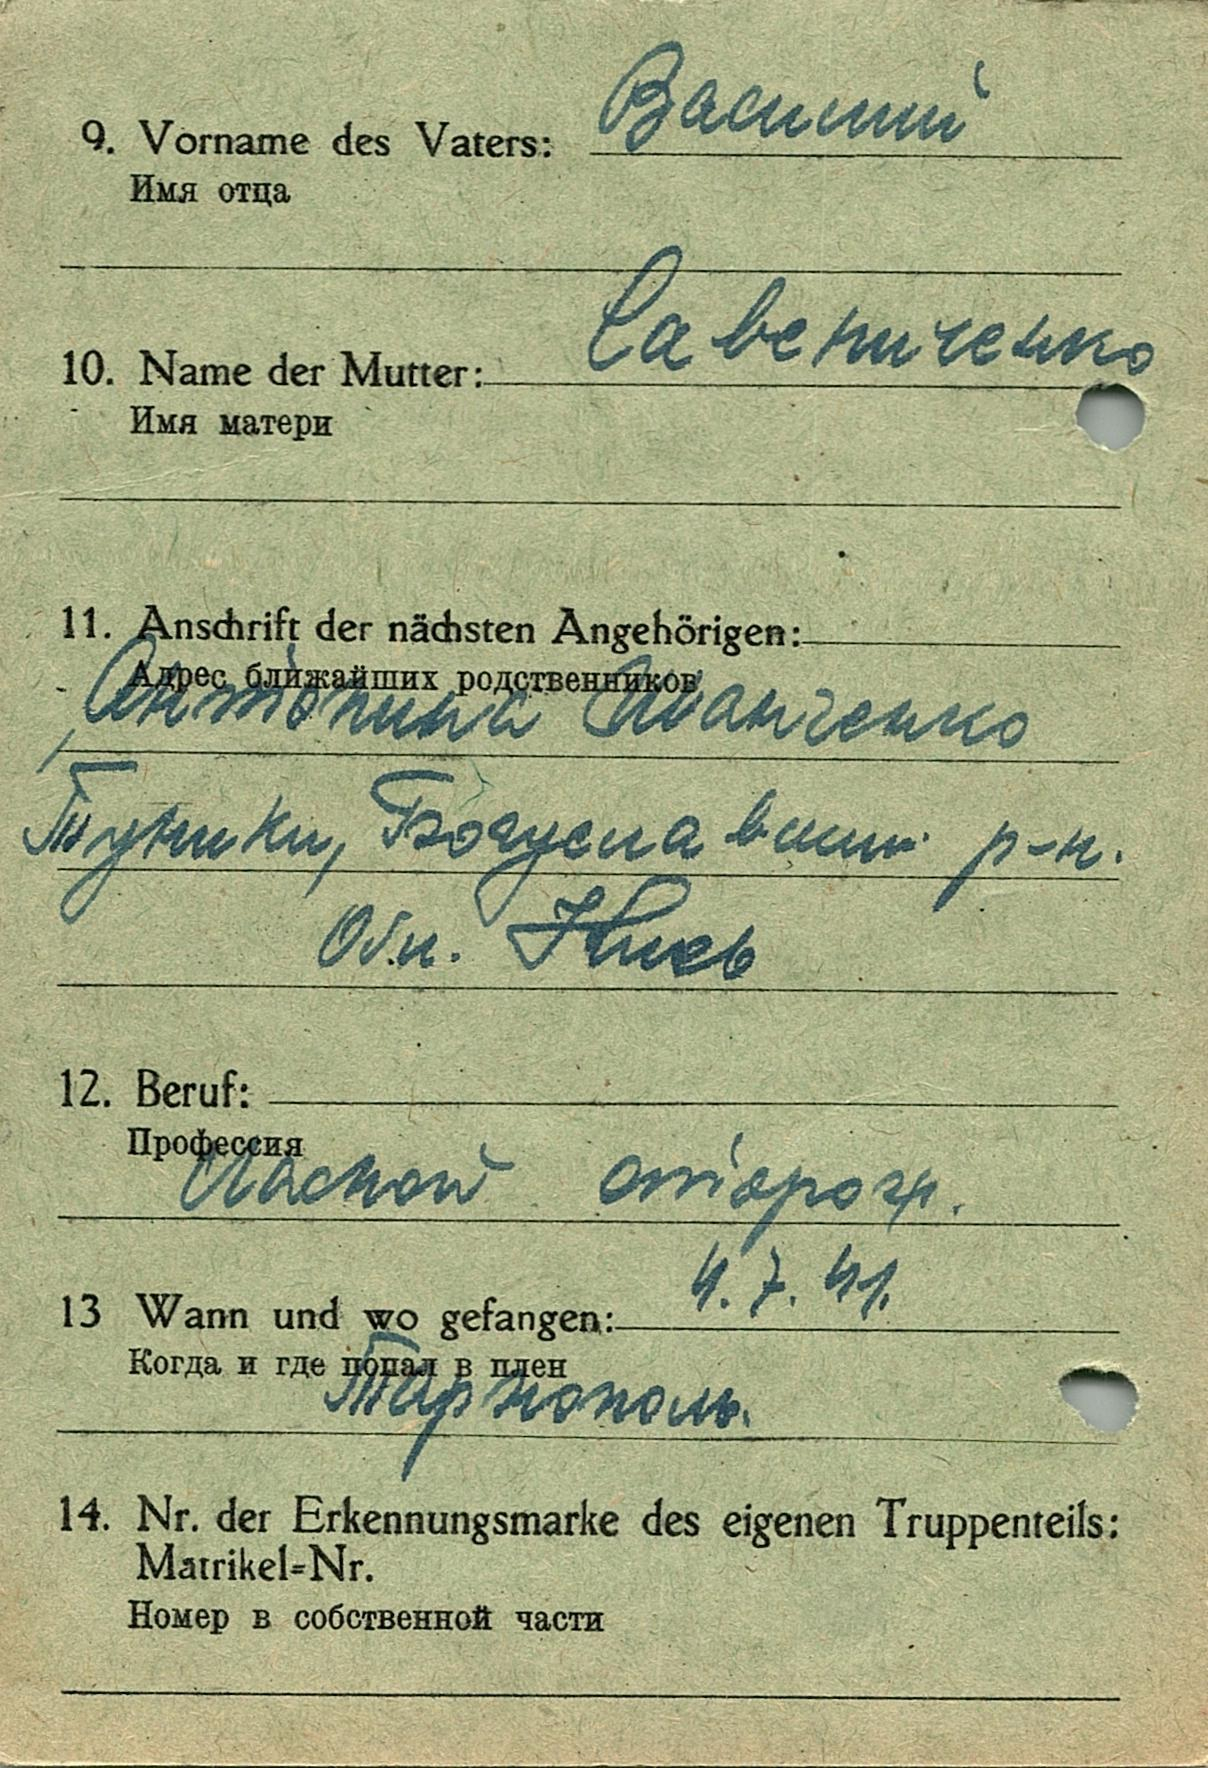 9. Vorname des Vaters: Василий
Имя отца
Савениченко
10. Name der Mutter:
Имя матери
11. Anschrift der nächsten Angehörigen:
Адрес ближайших родственников
Антонина Иванченко
Туники, Богуславский р-н.
Обл. Киев
12. Beruf:
Профессия
Лесной сторож.
13 Wann und wo gefangen: 4.7.41.
Когда и где попал в плен
Тарнополь.
14. Nr. der Erkennungsmarke des eigenen Truppenteils:
Matrikel=Nr.
Номер в собственной части